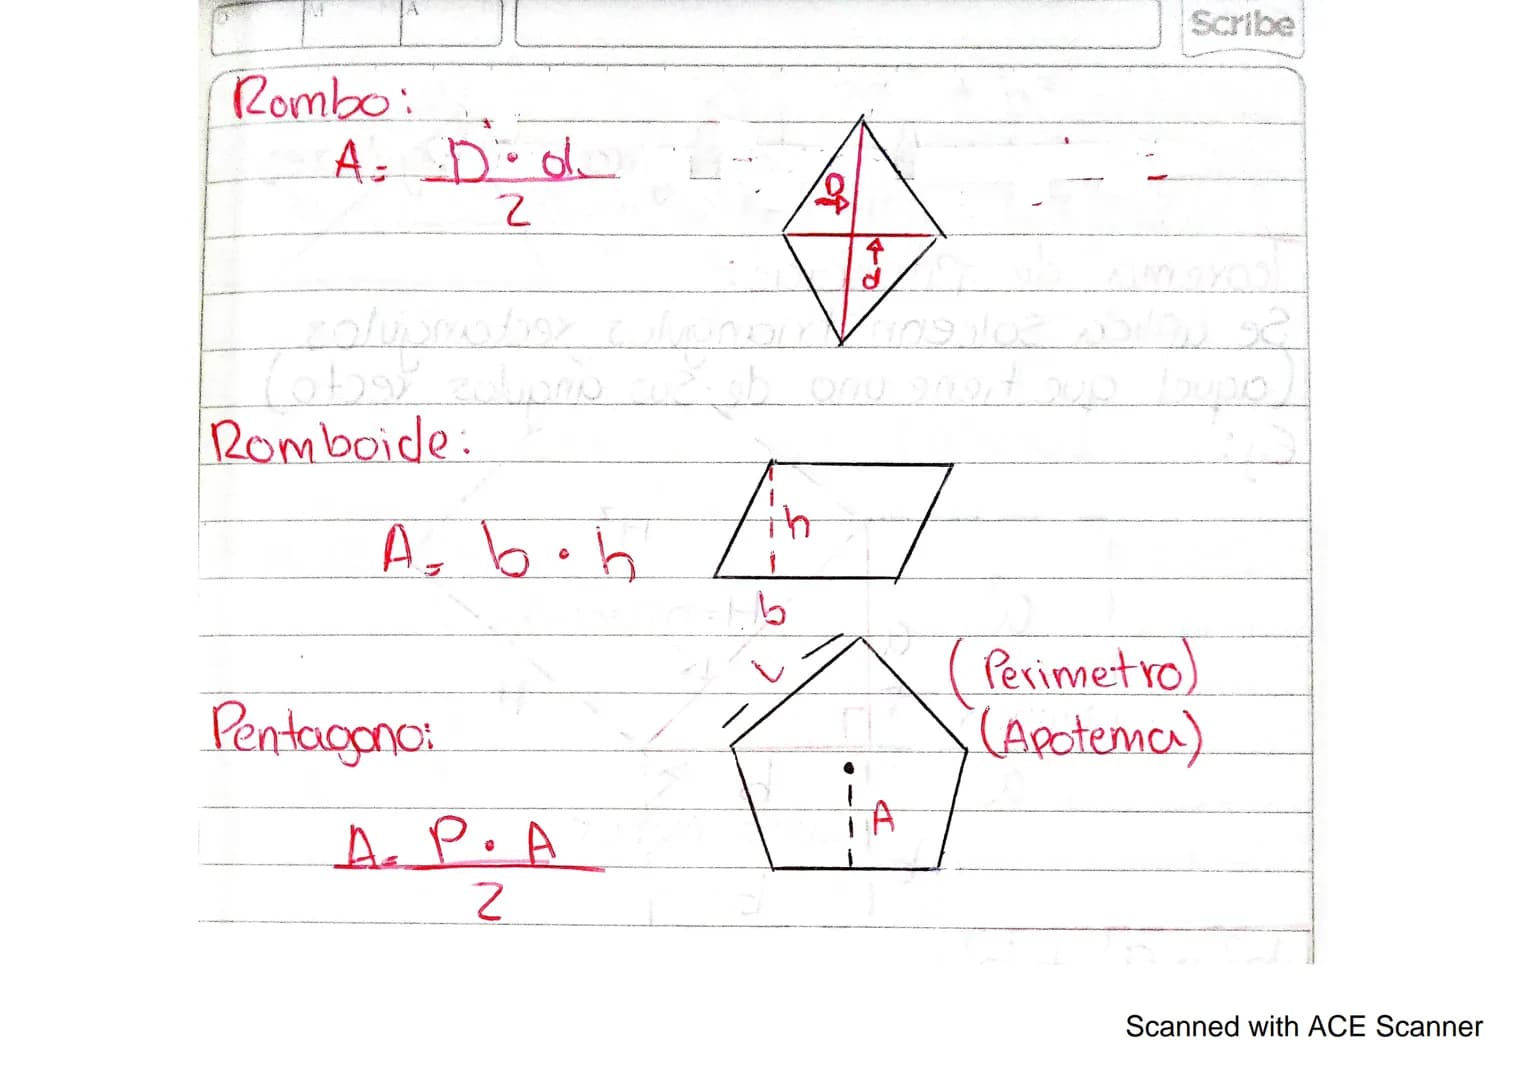 D M A
Scribe
Rombo:
A= D·d
2
D
d
Romboide:
A= b·h
h
b
L
(Perimetro)
Pentagono:
(Apotema)
A
A= P·A
2
Scanned with ACE Scanner